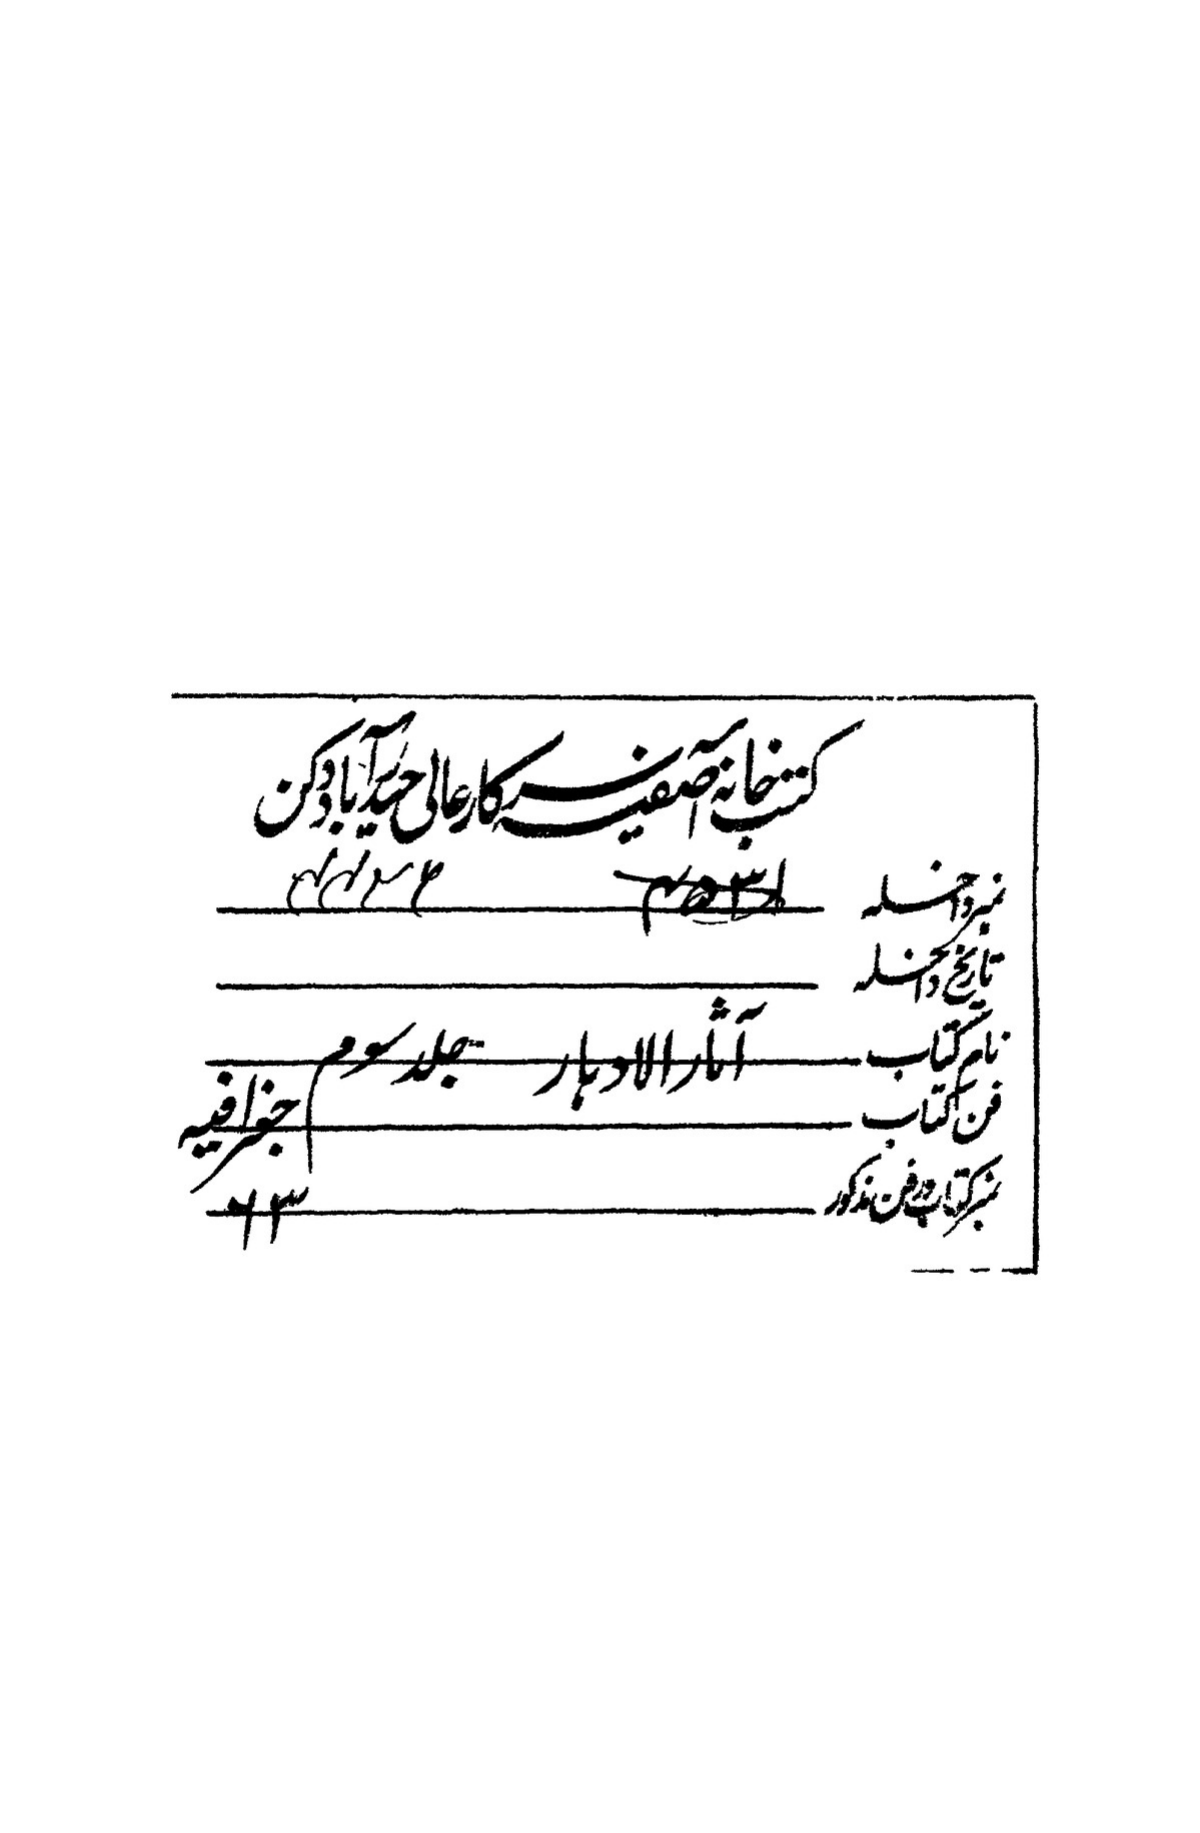 کتب خانہ آصفیہ سرکار عالی حیدرآباد دکن
نمبر داخلہ
تاریخ داخلہ
نام کتاب آثار الادہار جلد سوم
فن کتاب جغرافیہ
نمبر کتاب در فن مذکور ٦١٣